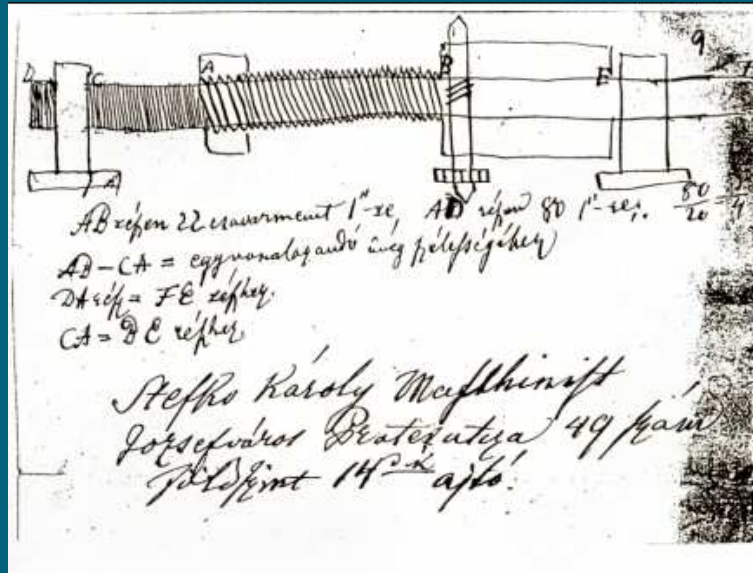 9
D C A B E
AB részen 22 csavarmenet 1"-re, AD részen 80 1"-re; 80/20 =
AB – CA = egy vonalozandó üveg szélességéhez
DA rész = FE részhez.
CA = BE részhez
Stefko Károly Maschinist
Jozsefváros 49 szám
Földszint 14 ajtó.